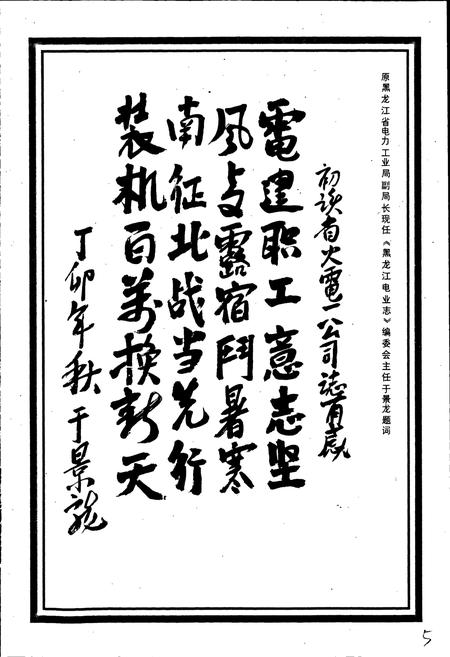 原黑龙江省电力工业局副局长现任《黑龙江电业志》编委会主任于景龙题词
初读省火電一公司誌有感
電建职工意志坚
风步露宿鬥暑寒
南征北战当先行
装机百萬换新天
丁卯年秋 于景龙
5